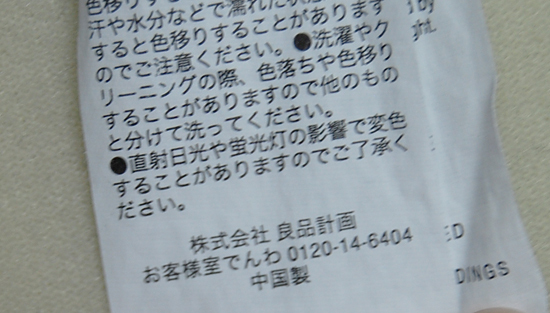 色移りす
汗や水分などで濡れた状
すると色移りすることがあります
のでご注意ください。●洗濯やク
リーニングの際、色落ちや色移り
することがありますので他のもの
と分けて洗ってください。
●直射日光や蛍光灯の影響で変色
することがありますのでご了承く
ださい。
株式会社 良品計画
お客様室でんわ 0120-14-6404
中国製
by
ght.
ED
DINGS